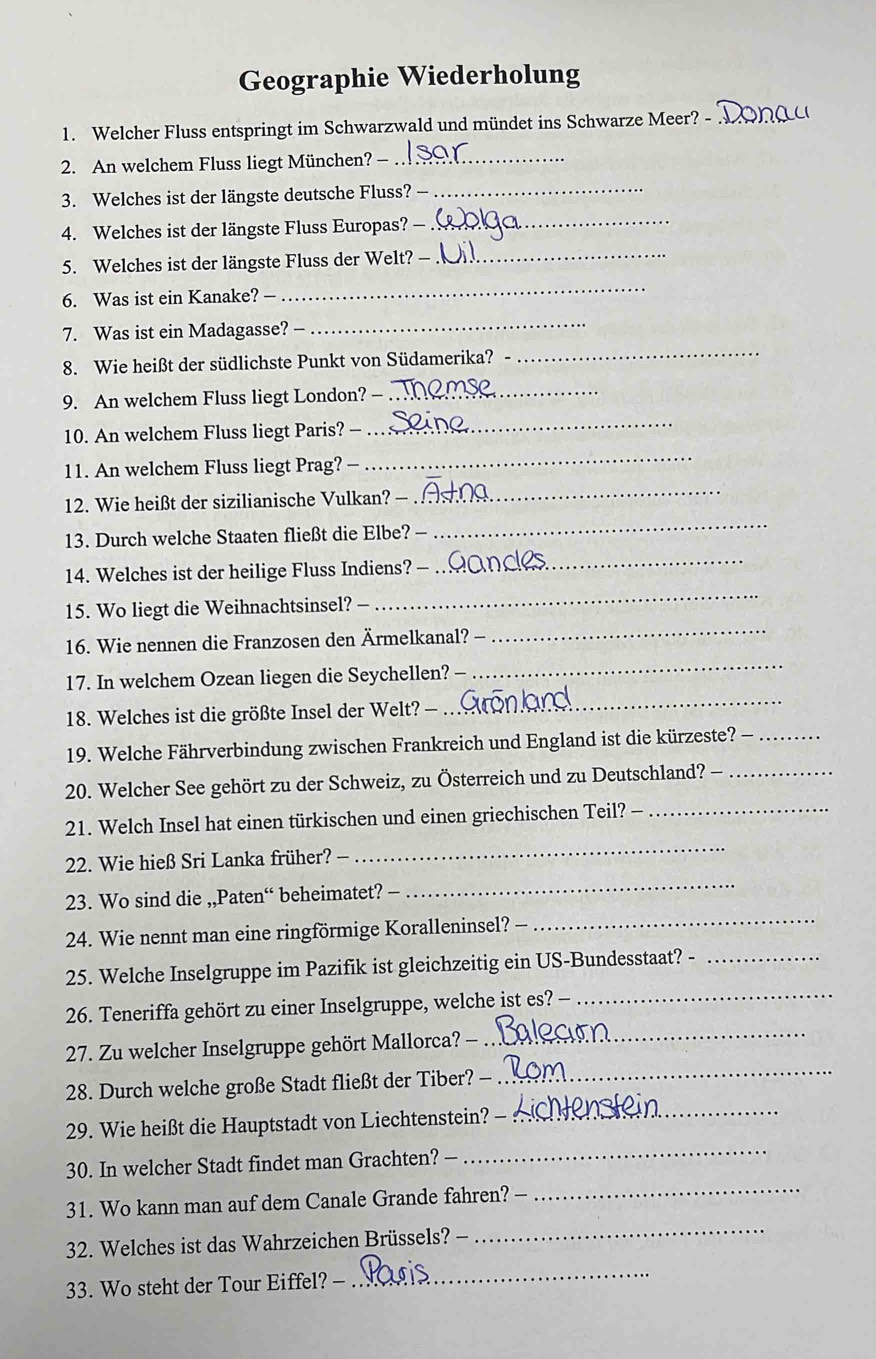 Geographie Wiederholung
1. Welcher Fluss entspringt im Schwarzwald und mündet ins Schwarze Meer? - Donau
2. An welchem Fluss liegt München? – Isar
3. Welches ist der längste deutsche Fluss? – ..............................
4. Welches ist der längste Fluss Europas? – Wolga
5. Welches ist der längste Fluss der Welt? – Nil
6. Was ist ein Kanake? – ..............................
7. Was ist ein Madagasse? – ..............................
8. Wie heißt der südlichste Punkt von Südamerika? - ..............................
9. An welchem Fluss liegt London? – Themse
10. An welchem Fluss liegt Paris? – Seine
11. An welchem Fluss liegt Prag? – ..............................
12. Wie heißt der sizilianische Vulkan? – Ätna
13. Durch welche Staaten fließt die Elbe? – ..............................
14. Welches ist der heilige Fluss Indiens? – Gandes
15. Wo liegt die Weihnachtsinsel? – ..............................
16. Wie nennen die Franzosen den Ärmelkanal? – ..............................
17. In welchem Ozean liegen die Seychellen? – ..............................
18. Welches ist die größte Insel der Welt? – Grönland
19. Welche Fährverbindung zwischen Frankreich und England ist die kürzeste? – .........
20. Welcher See gehört zu der Schweiz, zu Österreich und zu Deutschland? – ...............
21. Welch Insel hat einen türkischen und einen griechischen Teil? – ..........................
22. Wie hieß Sri Lanka früher? – ..............................
23. Wo sind die „Paten“ beheimatet? – ..............................
24. Wie nennt man eine ringförmige Koralleninsel? – ..............................
25. Welche Inselgruppe im Pazifik ist gleichzeitig ein US-Bundesstaat? - ................
26. Teneriffa gehört zu einer Inselgruppe, welche ist es? – ..............................
27. Zu welcher Inselgruppe gehört Mallorca? – Balearn
28. Durch welche große Stadt fließt der Tiber? – Rom
29. Wie heißt die Hauptstadt von Liechtenstein? – Lichtenstein
30. In welcher Stadt findet man Grachten? – ..............................
31. Wo kann man auf dem Canale Grande fahren? – ..............................
32. Welches ist das Wahrzeichen Brüssels? – ..............................
33. Wo steht der Tour Eiffel? – Paris